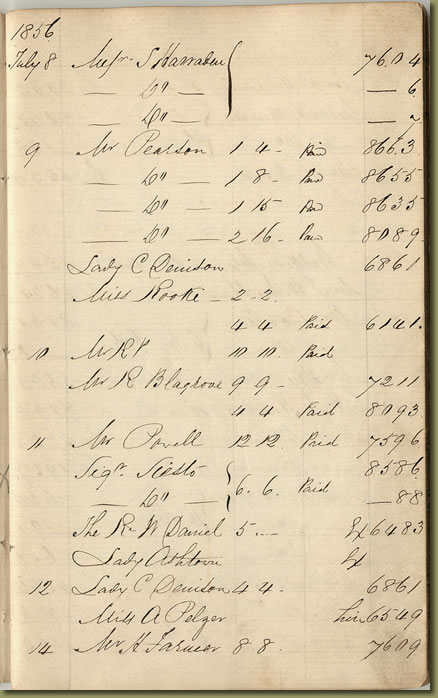 1856
July 8 Messrs S Harraden 7604
— Do — — 6
— Do — — 7
9 Mr Pearson 1 4 - Paid 8663
— Do — 1 8 - Paid 8655
— Do — 1 15 Paid 8635
— Do — 2 16 - Paid 8089
Lady C Denison 6861
Miss Rooke - 2 - 2.
4 4 Paid 6141.
10 Mr R P 10 10. Paid
Mr R Blagrove 9 9 - 7211
4 4 Paid 8093
11 Mr Powell 12 12 Paid 7596
Sigr 8586
— Do — 6. 6. Paid — 88
The Rev W Daniel 5 -.- Ex 6483
Lady Ashtown Ex
12 Lady C Denison 4 4 - 6861
Miss A Pelzer 6549
14 Mr H Farmer 8 8. 7609